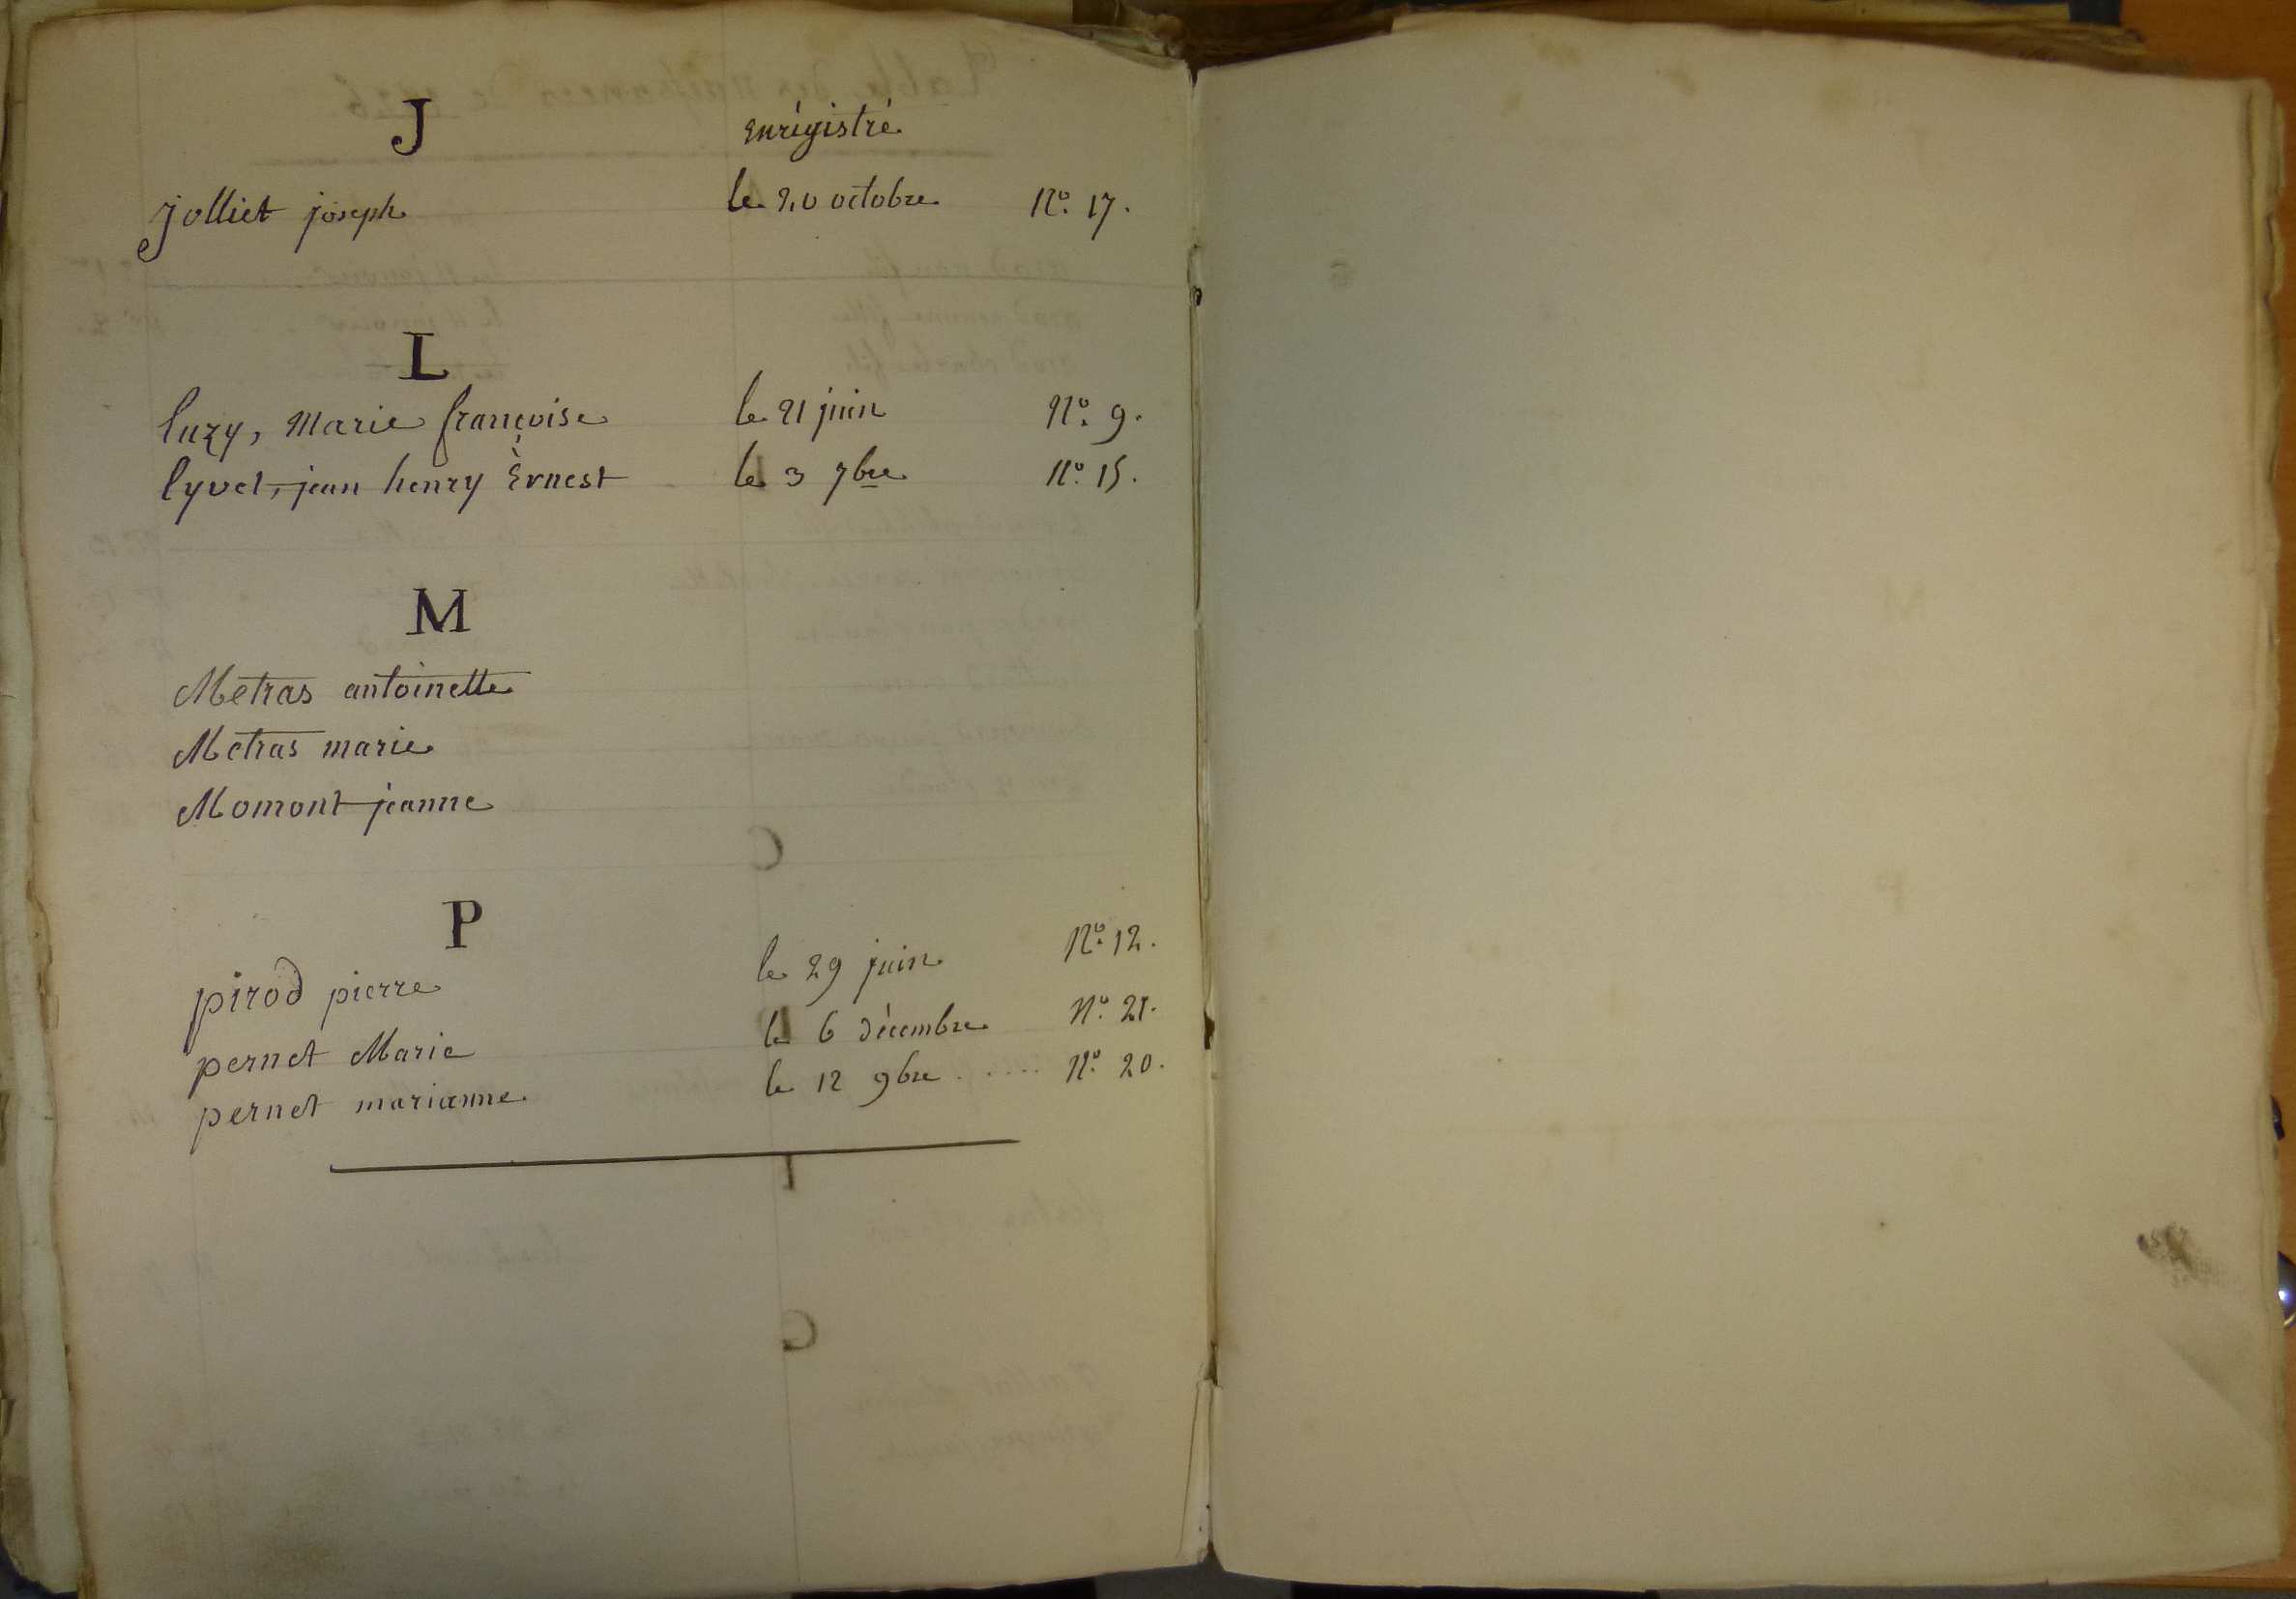 J enrégistré
jolliet joseph le 20 octobre No. 17.
L
luzy, Marie françoise le 21 juin No. 9.
lyvet, jean henry Èrnest le 3 7bre No. 15.
M
Metras antoinette
Metras marie
Momont jeanne
P
pirod pierre le 29 juin No. 12.
pernet Marie le 6 décembre No. 21.
pernet marianne le 12 9bre ..... No. 20.